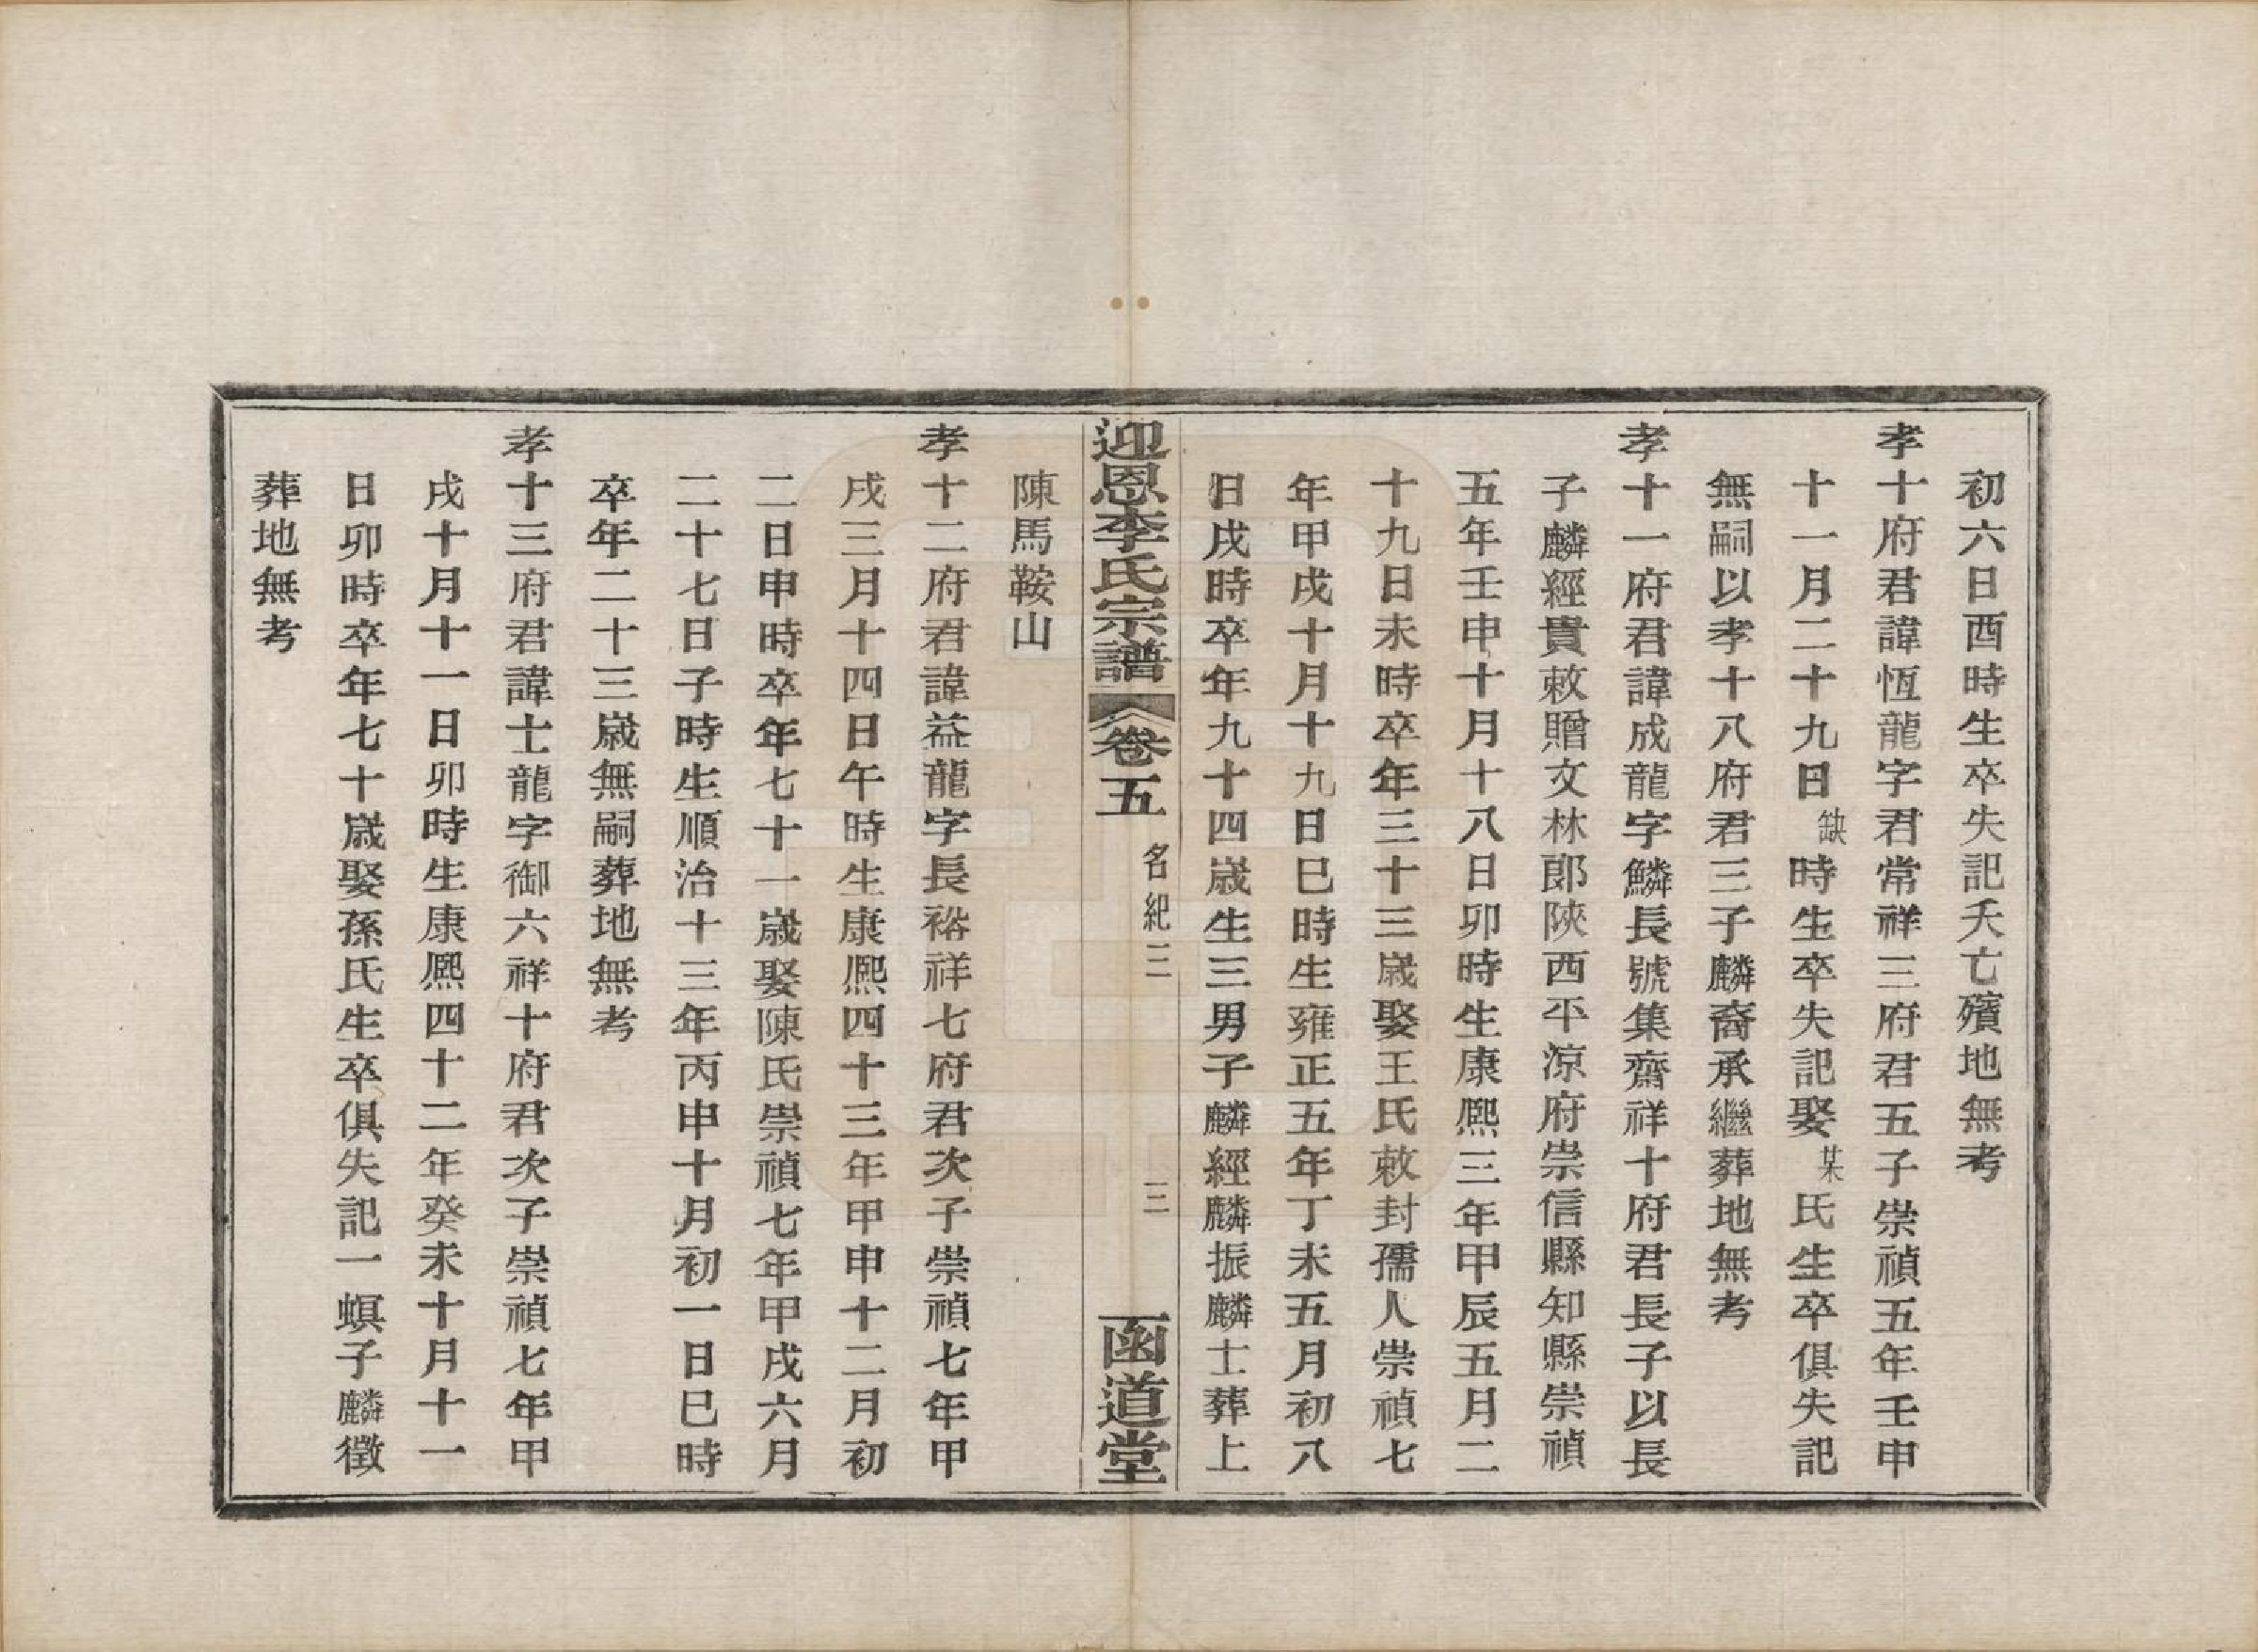 初六日酉時生卒失記夭亡殯地無考
孝十府君諱恆龍字君常祥三府君五子崇禎五年壬申
十一月二十九日缺時生卒失記娶某氏生卒俱失記
無嗣以孝十八府君三子麟裔承繼葬地無考
孝十一府君諱成龍字鱗長號集齋祥十府君長子以長
子麟經貴敕贈文林郎陝西平涼府崇信縣知縣崇禎
五年壬申十月十八日卯時生康熙三年甲辰五月二
十九日未時卒年三十三歲娶王氏敕封孺人崇禎七
年甲戌十月十九日巳時生雍正五年丁未五月初八
日戌時卒年九十四歲生三男子麟經麟振麟士葬上
迎恩李氏宗譜 卷五 名紀三 三 函道堂
陳馬鞍山
孝十二府君諱益龍字長裕祥七府君次子崇禎七年甲
戌三月十四日午時生康熙四十三年甲申十二月初
二日申時卒年七十一歲娶陳氏崇禎七年甲戌六月
二十七日子時生順治十三年丙申十月初一日巳時
卒年二十三歲無嗣葬地無考
孝十三府君諱士龍字御六祥十府君次子崇禎七年甲
戌十月十一日卯時生康熙四十二年癸未十月十一
日卯時卒年七十歲娶孫氏生卒俱失記一螟子麟徵
葬地無考